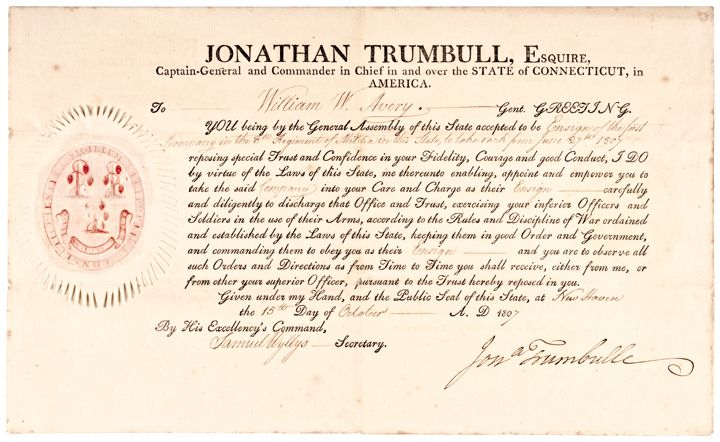 JONATHAN TRUMBULL, ESQUIRE,
Captain-General and Commander in Chief in and over the STATE of CONNECTICUT, in
AMERICA.
To William W. Avery. Gent. GREETING.
YOU being by the General Assembly of this State accepted to be Ensign of the first
Company in the 8th Regiment of Militia in this State, to take rank from June 27th 1807
reposing special Trust and Confidence in your Fidelity, Courage and good Conduct, I DO
by virtue of the Laws of this State, me thereunto enabling, appoint and empower you to
take the said Company into your Care and Charge as their Ensign carefully
and diligently to discharge that Office and Trust, exercising your inferior Officers and
Soldiers in the use of their Arms, according to the Rules and Discipline of War ordained
and established by the Laws of this State, keeping them in good Order and Government,
and commanding them to obey you as their Ensign and you are to observe all
such Orders and Directions as from Time to Time you shall receive, either from me, or
from other your superior Officer, pursuant to the Trust hereby reposed in you.
Given under my Hand, and the Public Seal of this State, at New Haven
the 15th Day of October A. D 1807
By His Excellency's Command,
Samuel Wyllys Secretary.
Jona Trumbull